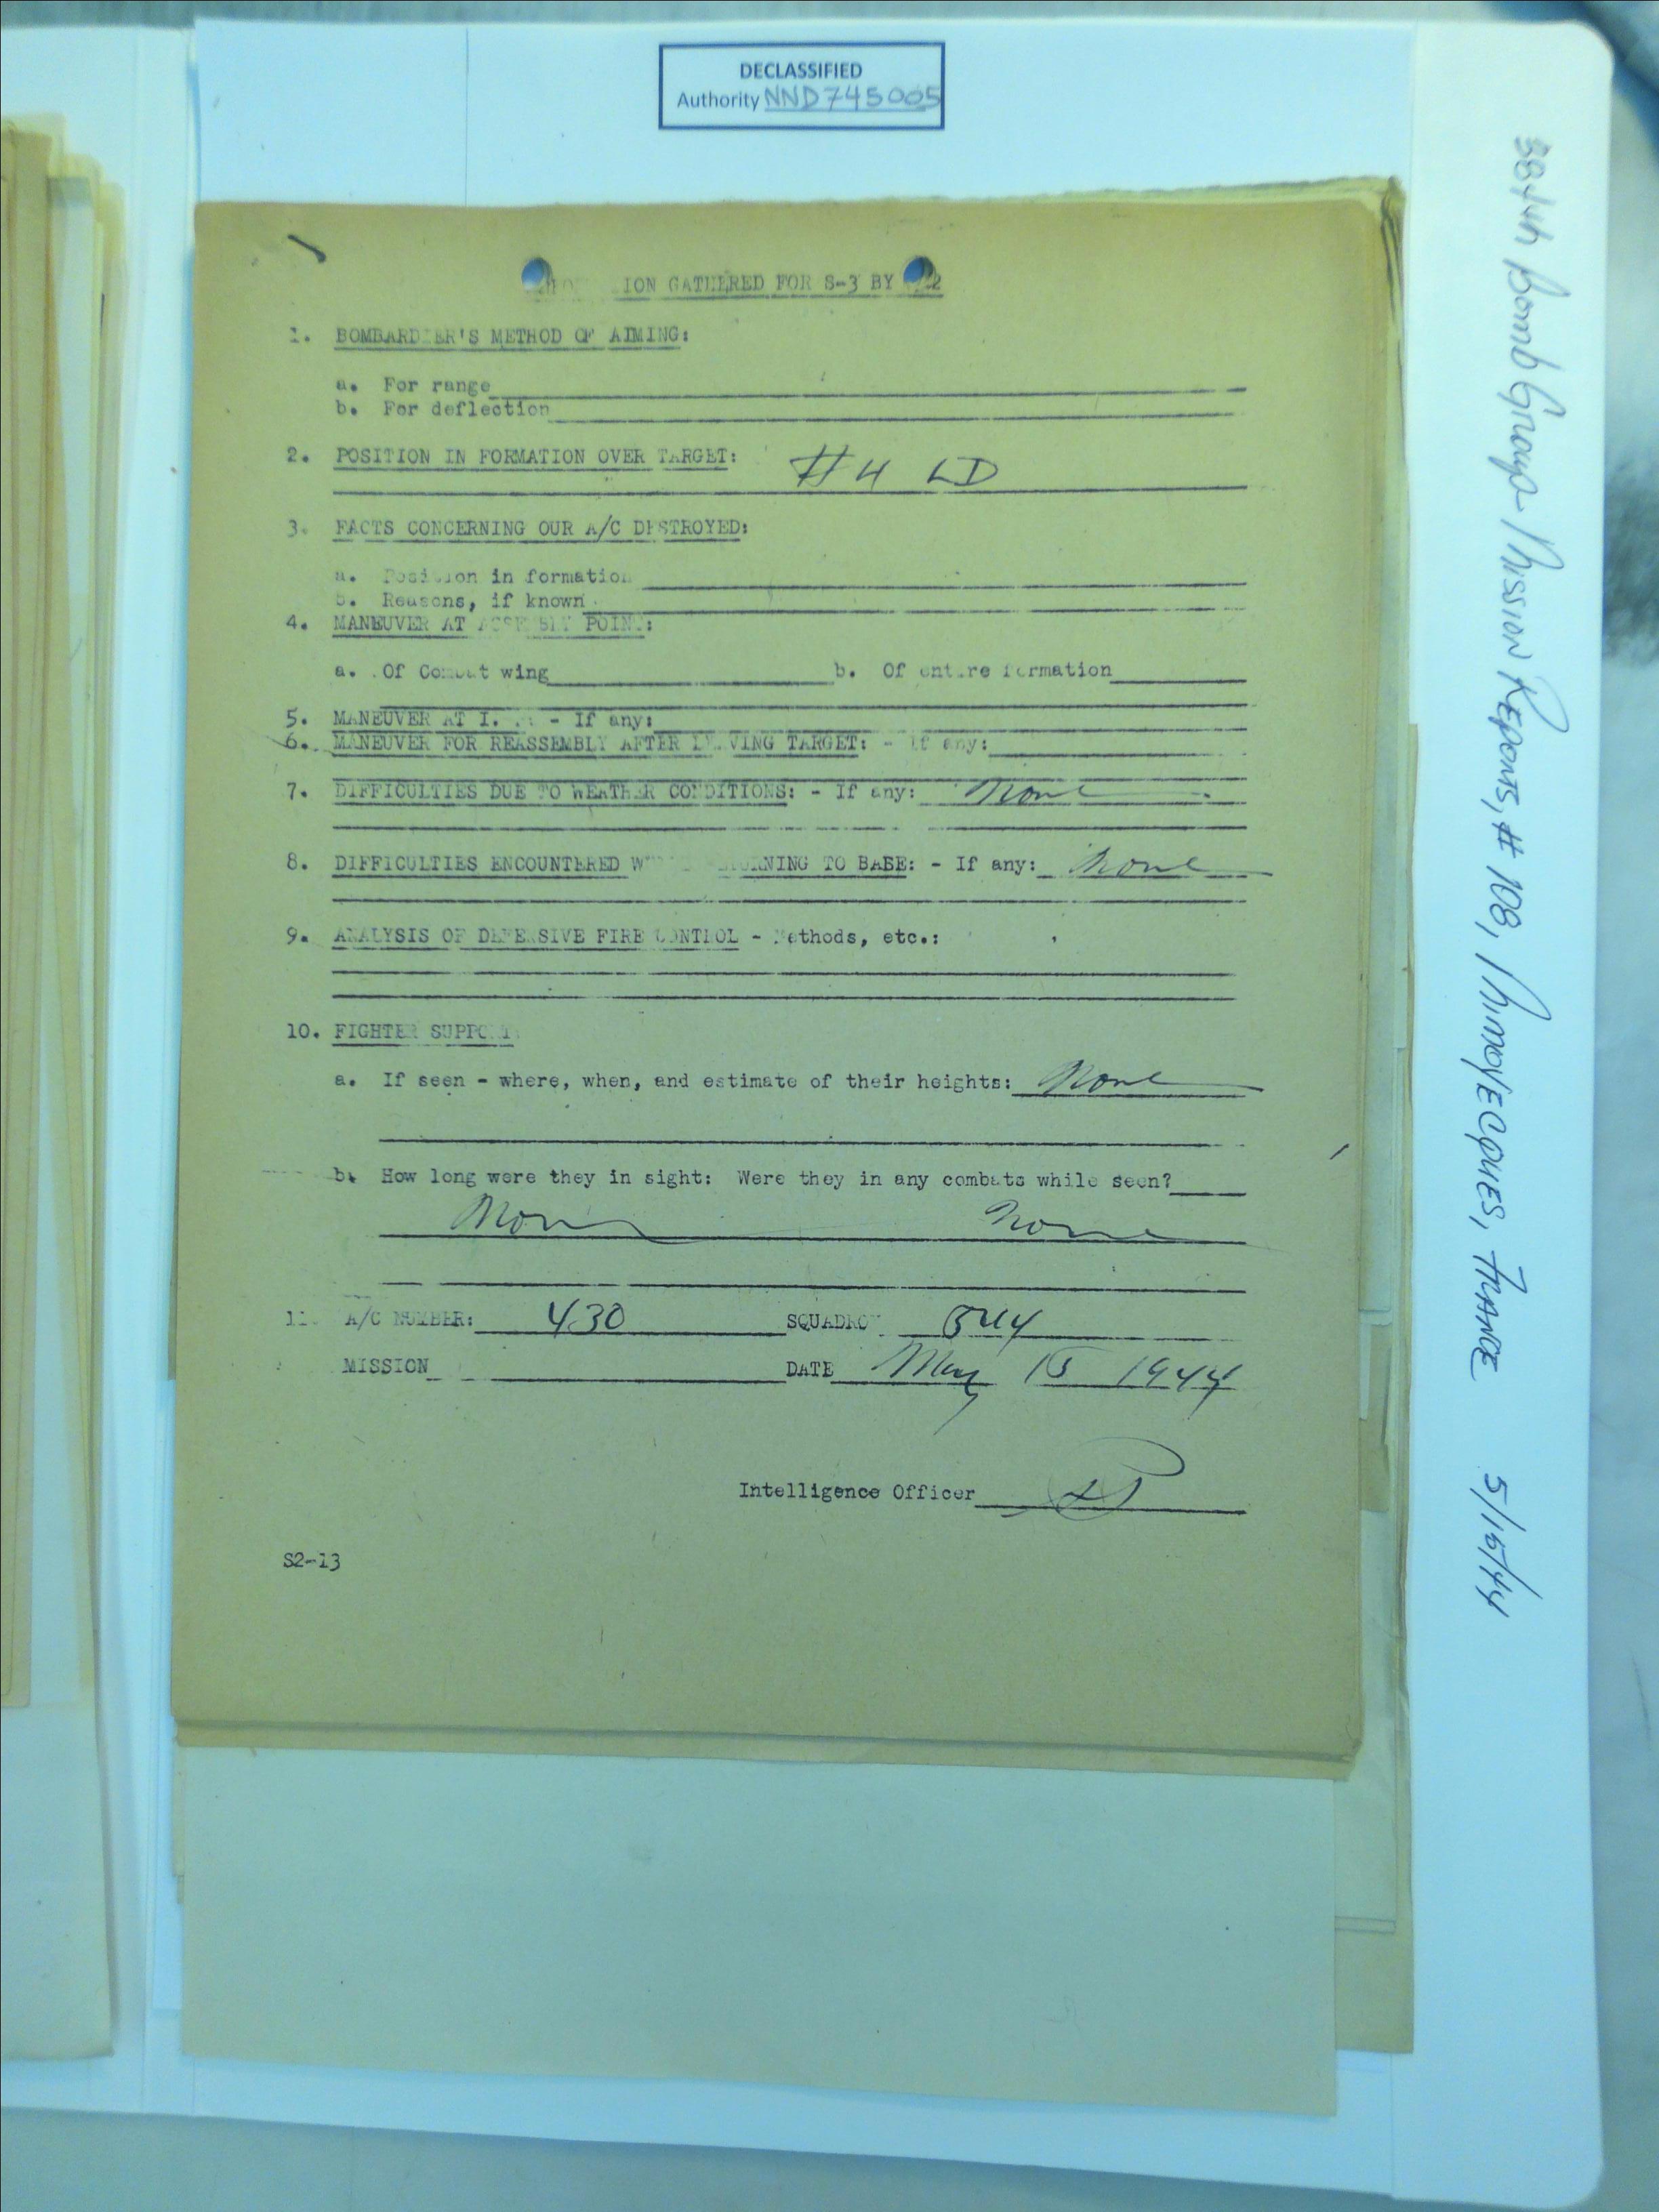 DECLASSIFIED
Authority NND745005
ION GATHERED FOR S-3 BY
1. BOMBARDIER'S METHOD OF AIMING:
a. For range
b. For deflection
2. POSITION IN FORMATION OVER TARGET: #4 LD
3. FACTS CONCERNING OUR A/C DESTROYED:
a. Position in formation
b. Reasons, if known
4. MANEUVER AT ASSEMBLY POINT:
a. Of Combat wing b. Of entire formation
5. MANEUVER AT I. - If any:
6. MANEUVER FOR REASSEMBLY AFTER LEAVING TARGET: - If any:
7. DIFFICULTIES DUE TO WEATHER CONDITIONS: - If any: None
8. DIFFICULTIES ENCOUNTERED RETURNING TO BASE: - If any: None
9. ANALYSIS OF DEFENSIVE FIRE CONTROL - Methods, etc.:
10. FIGHTER SUPPORT
a. If seen - where, when, and estimate of their heights: None
b. How long were they in sight: Were they in any combats while seen?
None None
11. A/C NUMBER: 430 SQUADRON 544
MISSION DATE May 15 1944
Intelligence Officer
S2-13
384th Bomb Group - Mission Reports, # 108, Mimoyecques, France 5/15/44